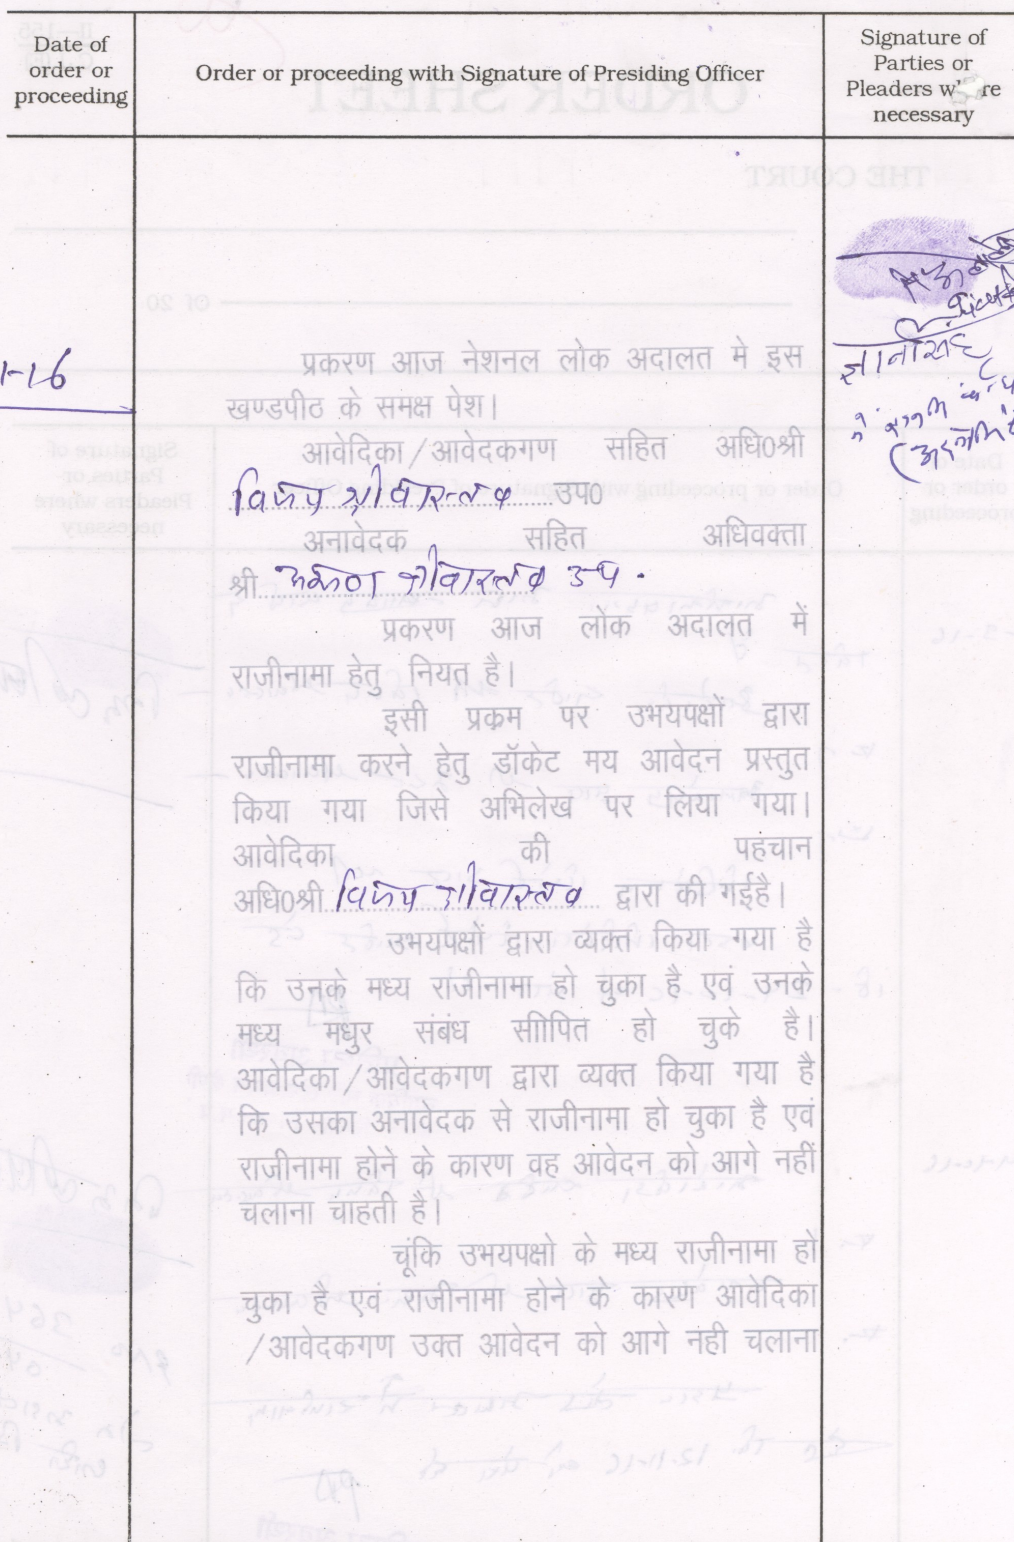 Date of
order or
proceeding
Order or proceeding with Signature of Presiding Officer
Signature of
Parties or
Pleaders
necessary
1-16
प्रकरण आज नेशनल लोक अदालत मे इस
खण्डपीठ के समक्ष पेश।
आवेदिका/आवेदकगण सहित अधि0श्री
विजय श्रीवास्तव उप0
अनावेदक सहित अधिवक्ता
श्री अरूण श्रीवास्तव उप.
प्रकरण आज लोक अदालत में
राजीनामा हेतु नियत है।
इसी प्रक्रम पर उभयपक्षों द्वारा
राजीनामा करने हेतु डॉकेट मय आवेदन प्रस्तुत
किया गया जिसे अभिलेख पर लिया गया।
आवेदिका की पहचान
अधि0श्री विजय श्रीवास्तव द्वारा की गईहै।
उभयपक्षों द्वारा व्यक्त किया गया है
कि उनके मध्य राजीनामा हो चुका है एवं उनके
मध्य मधुर संबंध सीापित हो चुके है।
आवेदिका/आवेदकगण द्वारा व्यक्त किया गया है
कि उसका अनावेदक से राजीनामा हो चुका है एवं
राजीनामा होने के कारण वह आवेदन को आगे नहीं
चलाना चाहती है।
चूंकि उभयपक्षो के मध्य राजीनामा हो
चुका है एवं राजीनामा होने के कारण आवेदिका
/आवेदकगण उक्त आवेदन को आगे नही चलाना